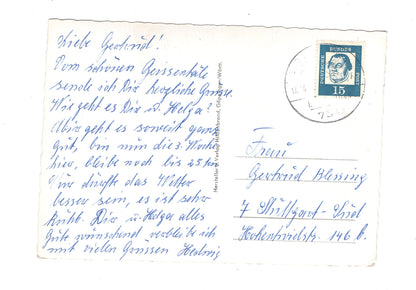 Liebe Gertrud!
Vom schönen Geissentäle
sende ich Dir herzliche Grüsse.
Wie geht es Dir u. Helga?
Mir geht es soweit ganz
gut, bin nun die 3. Woche
hier, bleibe noch bis 25ten
Nur dürfte das Wetter
besser sein, es ist sehr
kühl. Dir u. Helga alles
Gute wünschend verbleibe ich
mit vielen Grüssen Hedwig
Hersteller u. Verlag
DEUTSCHE BUNDESPOST
15
Frau
Gertrud Blessing
7 Stuttgart-Süd
Hohentwielstr. 146 b.